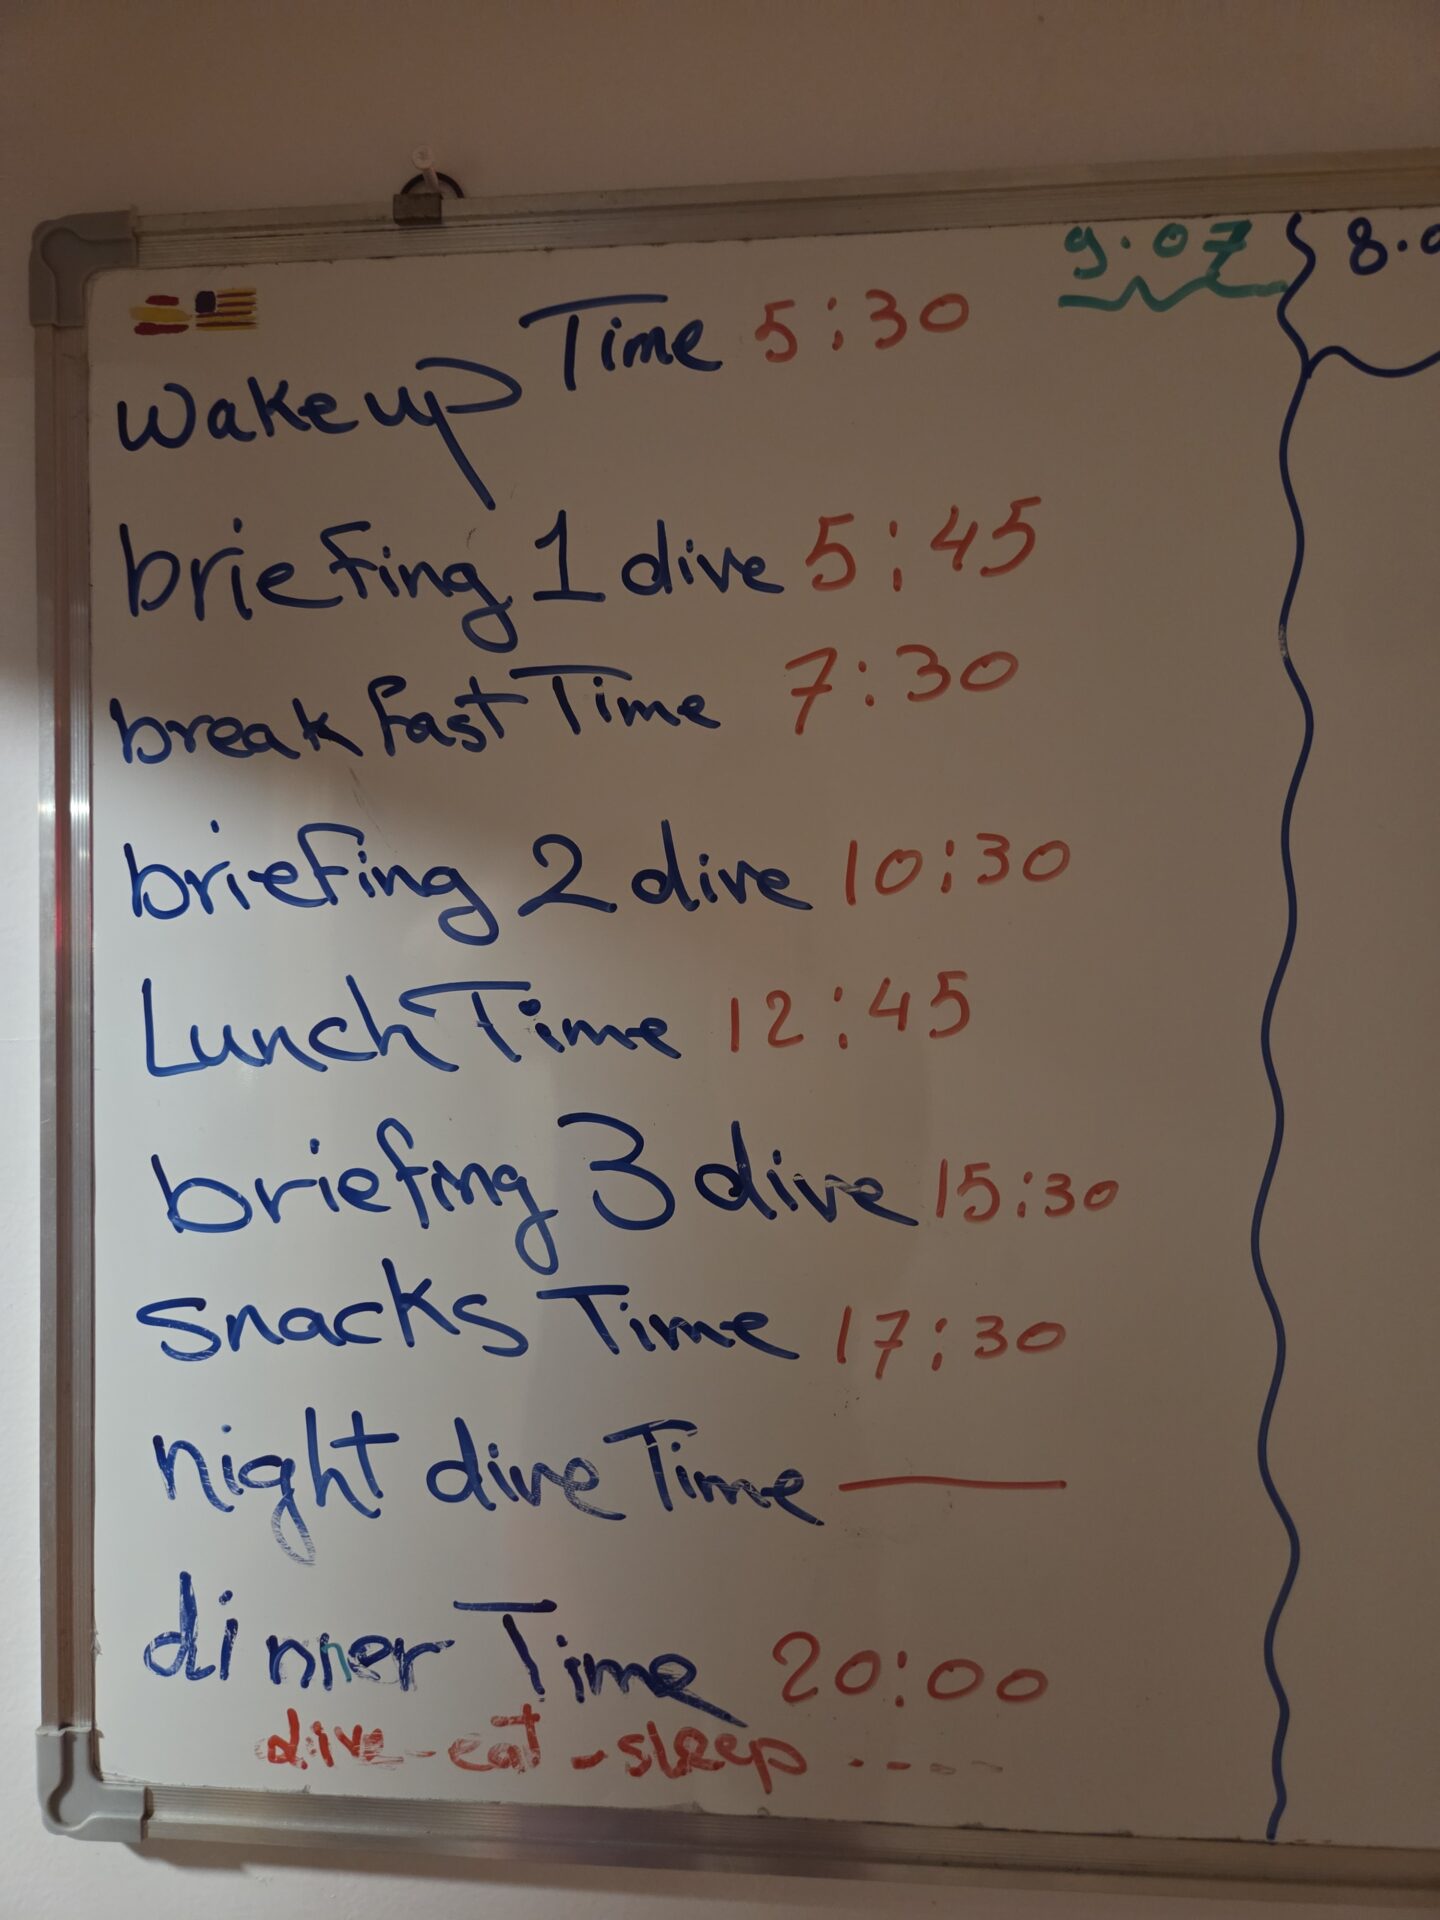 9.07
8.0
Wakeup Time 5:30
briefing 1 dive 5:45
breakfast Time 7:30
briefing 2 dive 10:30
Lunch Time 12:45
briefing 3 dive 15:30
Snacks Time 17:30
night dive Time —
dinner Time 20:00
dive-eat-sleep ....